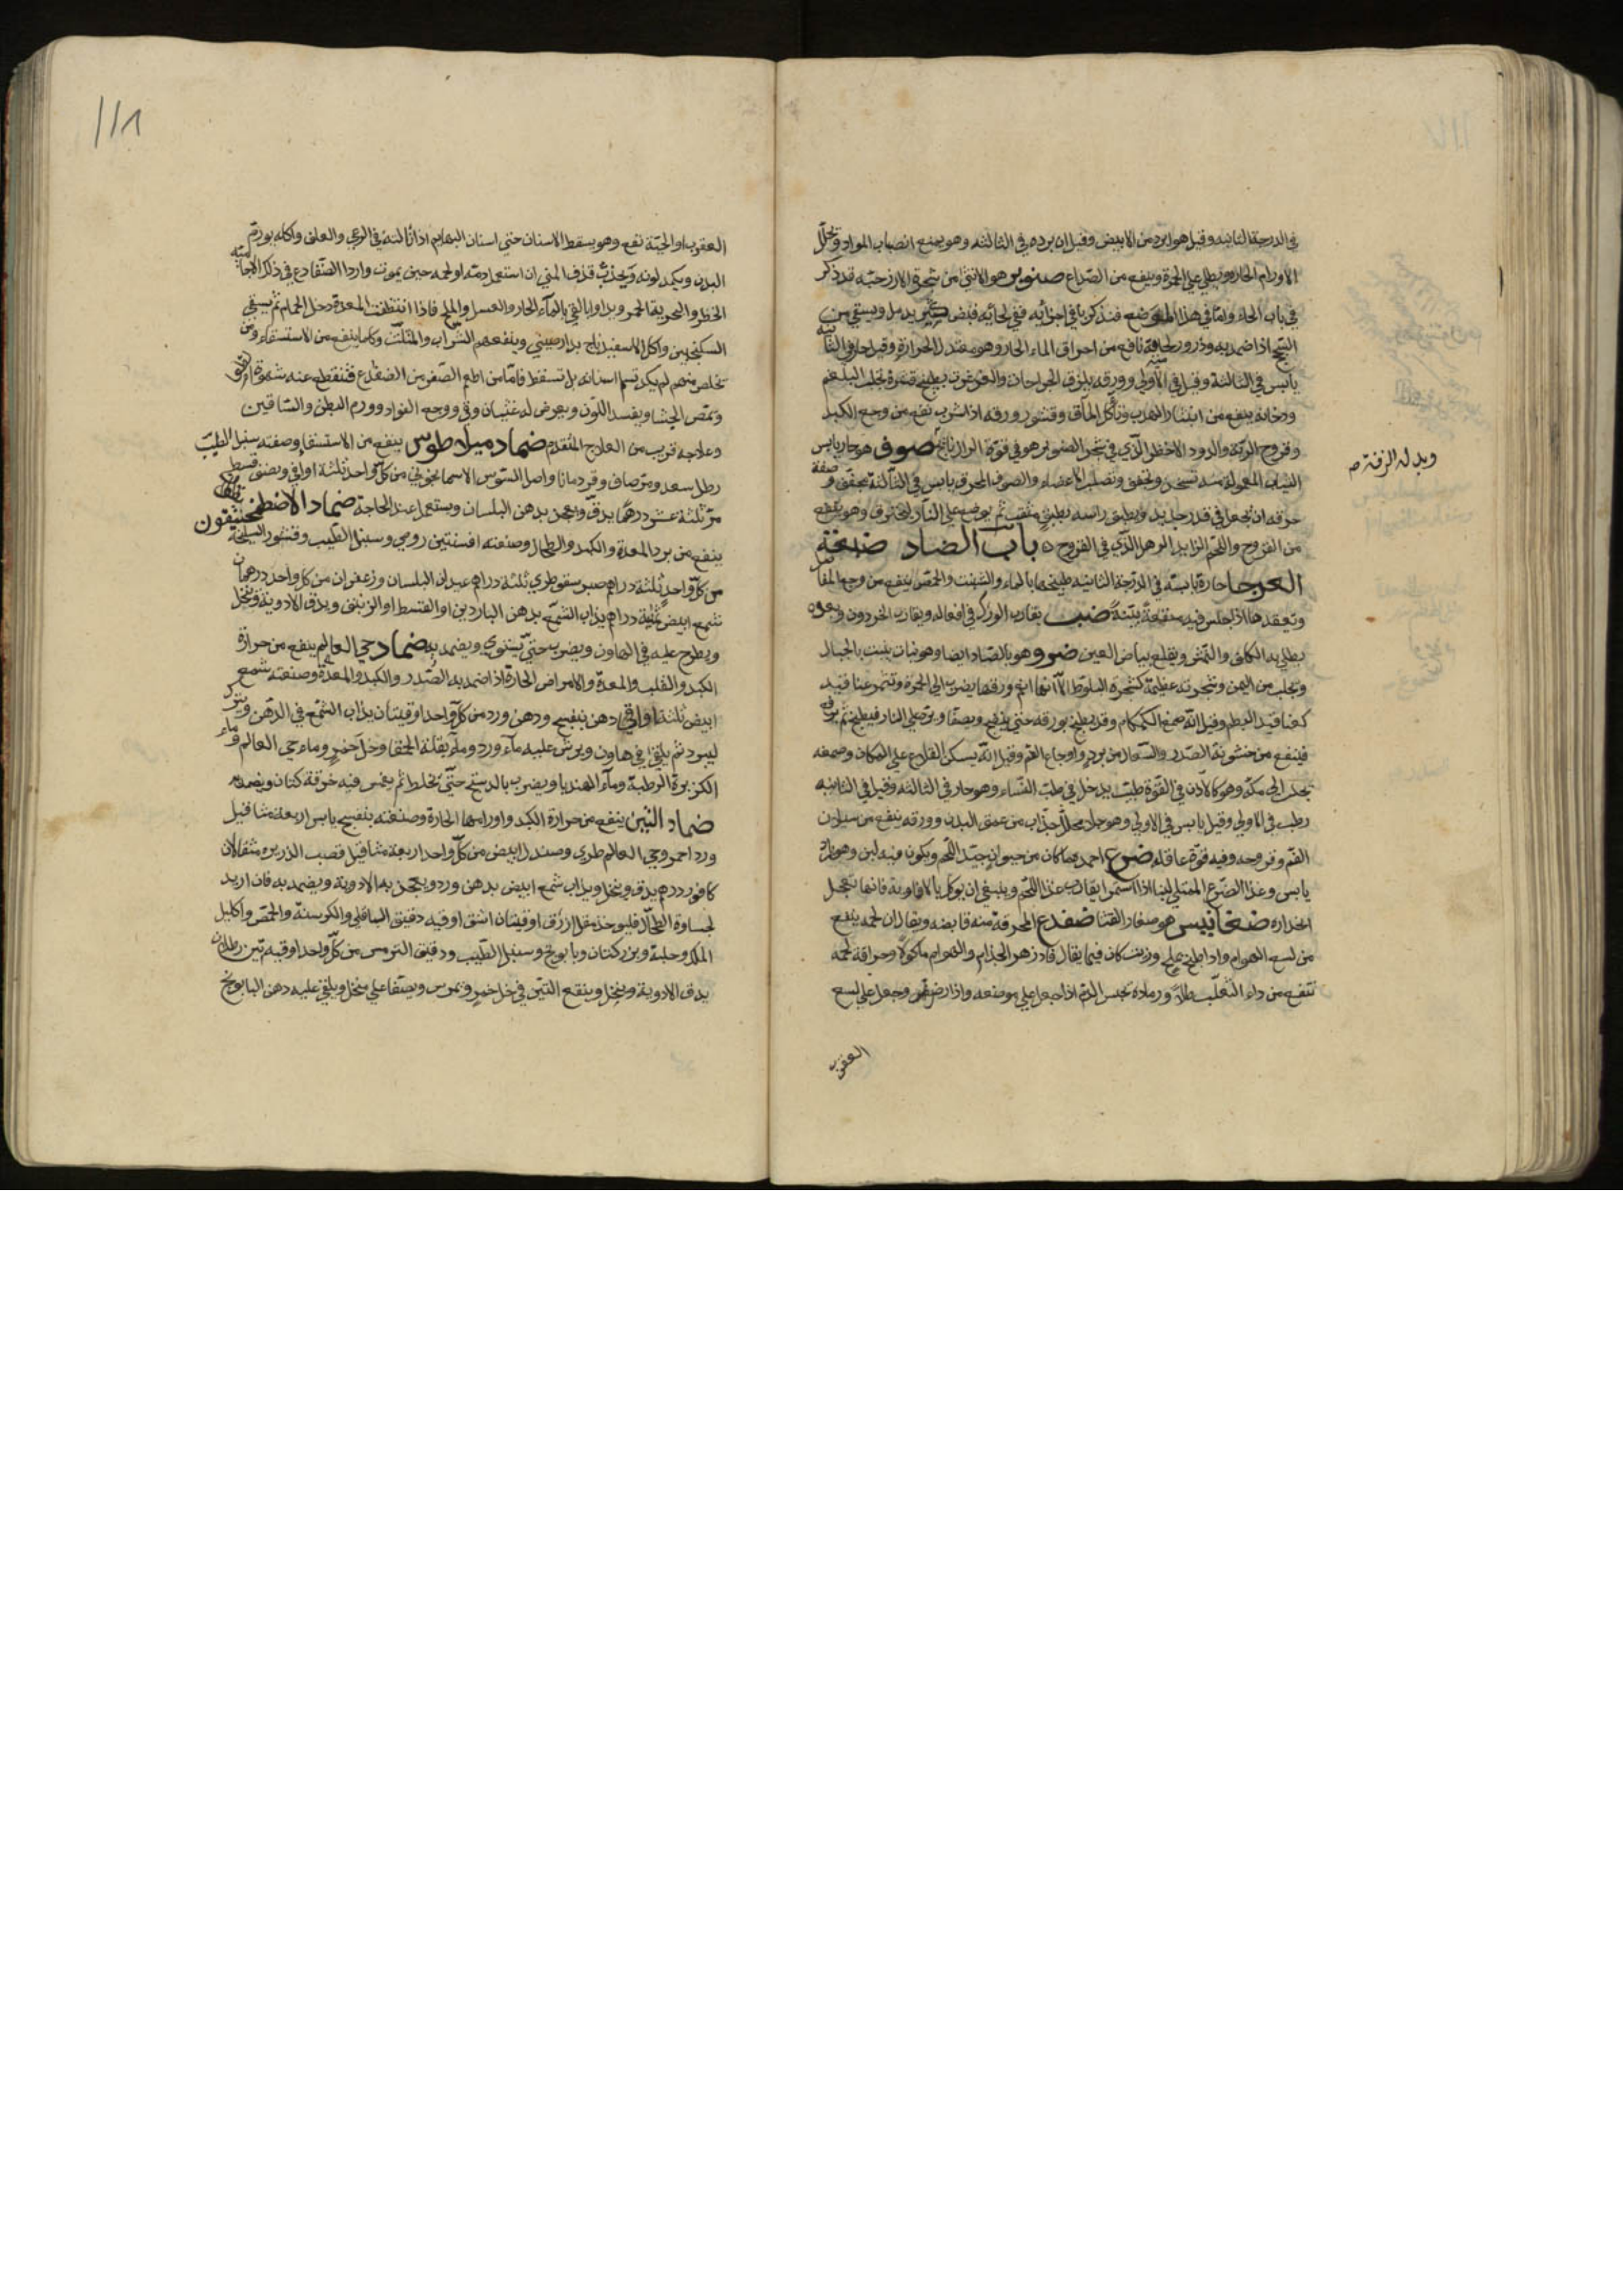 في الدرجة الثانيه وقيل هو ابرد من الابيض وقيل ان برده في الثالثه وهو يمنع انصباب المواد ويحلل
الاورام الحاره ويطلي علي الحمرة وينفع من الصداع صنوبر هو الانثي من شجرة الارز حبّه قد ذكر
في باب الحاء وامّا في هذا الموضع فنذكر باقي اجزائه ففي لحائه قبض كثير يدمل ويسقي من
السحج اذا ضمد به وذرور لحائه نافع من احراق الماء الحار وهو معتدل الحرارة وقيل حار في الثانيه
يابس في الثالثة وقيل في الاولي وورقه يلزق الجراحات والغرغرت بطبيخ قشره تجلب البلغم
ودخانه ينفع من انتثار الهدب وتأكل المآق وقشور ورقه اذا شرب نفع من وجع الكبد
وقروح الرئة والدود الاخضر الّذي في شجر الصنوبر هو في قوّة الذراريح صوف هو حار يابس
الثياب المعموله منه تسخن وتجفف وتصلب الاعضاء والصوف المحرق يابس في الثالثة مجفف وصفة
حرقه ان تجعل في قدر حديد ويطبق راسه بطبق مثقب ثم يوضع علي النار ليحترق وهو ينفع
من القروح واللحم الزايد الرهل الّذي في القروح ٥ باب الضاد ضبعة
العرجا حارة يابسة في الدرجة الثانيه طبيخها بالماء والشبت والحمص ينفع من وجع المفاصل
وتعقدها اذا جلس فيه منفعة بيّنة ضب يقارب الورل في افعاله ويقارب الحردون وبعره
يطلي به الكلف والنمش ويقلع بياض العين ضرو وهو بالصاد ايضا وهو نبات ينبت بالجبال
وتجلب من اليمن وشجرته عظيمة كشجرة البلوط الّا انها انعم ورقها يضرب الي الحمرة وتثمر عناقيد
كعناقيد البطم وقيل انّه صمغ الكمكام وقد يطبخ بورقه حتي ينضج ويصفا ويردّ علي النار فيطبخ ثم يرفع
فينفع من خشونة الصدر والسعال من برد واوجاع الفم وقيل انّه يسكن القلاع علي المكان وصمغه
يجلب الي مكة وهو كاللاذن في القوّة طيب يدخل في طيب النساء وهو حار في الثالثه وقيل في الثانيه
رطب في الاولي وقيل يابس في الاولي وهو جلاء محلل جذّاب من عمق البدن وورقه ينفع من سيلان
الفم وقروحه وفيه قوّة عاقله ضرع احمد ما كان من حيوان جيّد اللحم ويكون فيه لبن وهو بارد
يابس وغذا الضرع الممتلي لبنا اذا استمرا يقارب غذا اللحم وينبغي ان يوكل بالافاوية فانها تعجل
انحداره ضغابيس هو صغار القثا ضفدع المحرقة منه قابضه ويقال ان لحمه ينفع
من لسع الهوام واذا طبخ بملح وزيت كان فيما يقال فادزهر الجذام والهوام ماكولا وحراقة لحمه
تنفع من داء الثعلب طلاءً ورماده يحبس الدم اذا جعل علي موضعه واذا رض وجعل علي لسع
العقرب
وبدله الزفتة صح
١١٨
العقرب او الحيّة نفع وهو يسقط الاسنان حتي اسنان البهايم اذا نالته في الرعي والعلف واكله يورم
البدن ويكمد لونه ويحدث قذف المني ان استعمل دمه او لحمه حين يموت واردا الضفادع في ذلك الاجاميه
الخضر والبحريه الحمر ويداوا بالقي بالماء الحار والعسل والملح فاذا انتظفت المعدة دخل الحمام ثم يسقي
السكنجبين واكل الاسفيدباج بدارصيني وينفعهم الشراب والمثلث وكلما ينفع من الاستسقاء ومن
تخلص منهم لم يكد تسلم اسنانه بل تسقط فامّا من اطعم الصفر من الضفدع فتنقطع عنه شهوة
ويمص الجشا ويفسد اللون ويعرض له غثيان وقي ووجع الفواد وورم البطن والساقين
وعلاجه قريب من العلاج المتقدم ضماد ميلاطوس ينفع من الاستسقا وصفته سنبل الطيب
رطل سعد ومر صاف وقردمانا واصل السوس الاسمانجوني من كل واحد ثلثة اواقي ونصف قسط
مر ثلثة عشر درهما يدق ويعجن بدهن البلسان ويستعمل عند الحاجة ضماد الاصطمخيقون
ينفع من برد المعدة والكبد والطحال وصفته افسنتين رومي وسنبل الطيب وقشور السليخة
من كل واحد ثلثة دراهم صبر سقوطري ثلثة دراهم عيدان البلسان وزعفران من كل واحد درهمان
شمع ابيض ثمنية دراهم يذاب الشمع بدهن الناردين او القسط او الزنبق ويدق الادوية وينخل
ويطرح عليه في الهاون ويضرب حتي يستوي ويضمد به ضماد حي العالم ينفع من حرارة
الكبد والقلب والمعدة والامراض الحارة اذا ضمد به الصدر والكبد والمعدة وصفته شمع
ابيض ثلثة اواقي دهن بنفسج ودهن ورد من كل واحد اوقيتان يذاب الشمع في الدهن ويترك
ليبرد ثم يلقي في هاون ويرش عليه ماء ورد وماء بقلة الحمقا وخل خمر وماء حي العالم وماء
الكزبرة الرطبة وماء الهندبا ويضرب بالدستج حتي يختلط ثم يغمس فيه خرقة كتان ويضمد به
ضماد التين ينفع من حرارة الكبد واورامها الحارة وصفته بنفسج يابس اربعة مثاقيل
ورد احمر وحي العالم طري وصندل ابيض من كل واحد اربعة مثاقيل قصب الذريره مثقالان
كافور درهم يدق وينخل ويذاب شمع ابيض بدهن ورد ويعجن به الادوية ويضمد به فان اريد
لجساوة الطحال فليوخذ مقل ازرق اوقيتان اشق اوقيه دقيق الباقلي والكرسنة والحمص واكليل
الملك وحلبة وبزر كتان وبابونج وسنبل الطيب ودقيق الترمس من كل واحد اوقيه تين رطلان
يدق الادوية وينخل وينقع التين في خل خمر ويمرس ويصفا علي منخل ويلقي عليه دهن البابونج